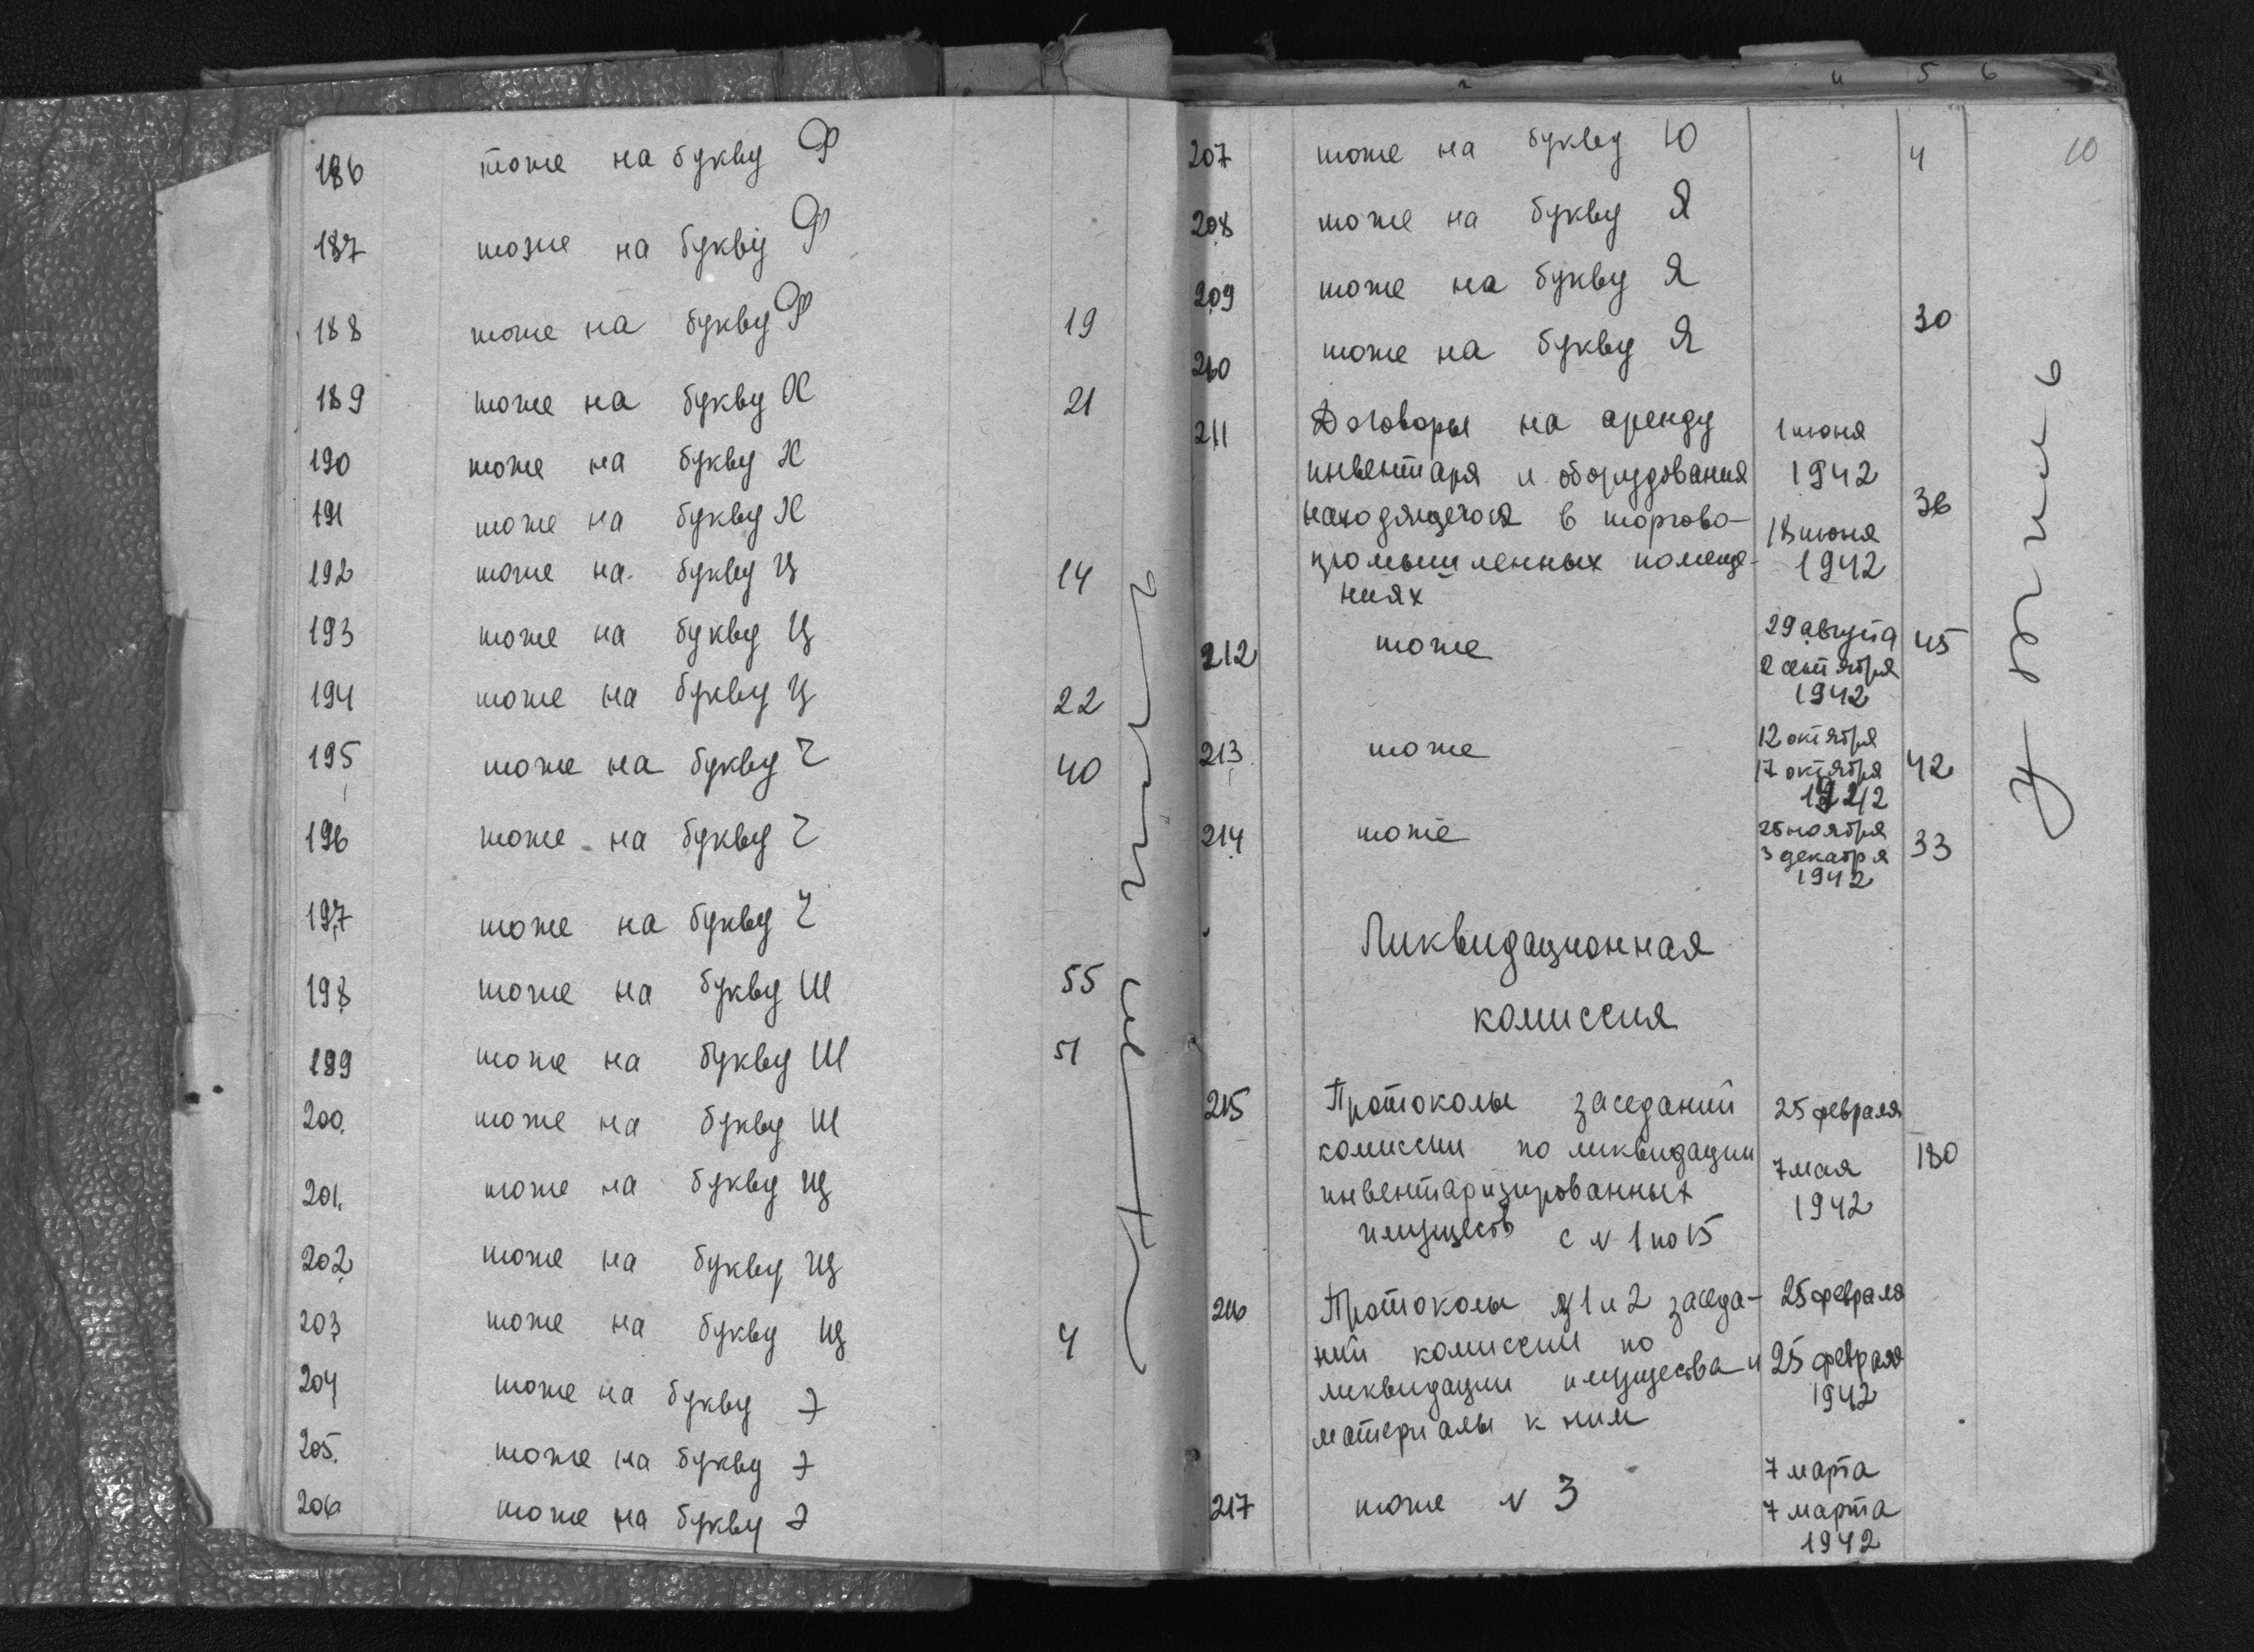 186 тоже на букву Ф
187 тоже на букву Ф
188 тоже на букву Ф 19
189 тоже на букву Х 21
190 тоже на букву Х
191 тоже на букву Х
192 тоже на букву Ц 14
193 тоже на букву Ц
194 тоже на букву Ц 22
195 тоже на букву Ч 40
196 тоже на букву Ч
197 тоже на букву Ч
198 тоже на букву Ш 55
199 тоже на букву Ш 51
200. тоже на букву Ш
201. тоже на букву Щ
202 тоже на букву Щ
203 тоже на букву Щ 4
204 тоже на букву Э
205. тоже на букву Э
206 тоже на букву Э
5 6
10
207 тоже на букву Ю 4
208 тоже на букву Я
209 тоже на букву Я 30
210 тоже на букву Я
211 Договоры на аренду 1 июня
инвентаря и оборудования 1942
находящегося в торгово- 18 июня 36
промышленных помеще- 1942
ниях
212 тоже 29 августа 45
2 сентября
1942
213 тоже 12 октября
17 октября 42
1942
214 тоже 25 ноября
3 декабря 33
1942
Ликвидационная
комиссия
215 Протоколы заседаний 25 февраля
комиссии по ликвидации 7 мая 180
инвентаризированных 1942
имуществ с N 1 по 15
216 Протоколы N 1 и 2 заседа- 25 февраля
ний комиссии по
ликвидации имущества и 25 февраля
материалы к ним 1942
217 тоже N 3 7 марта
7 марта
1942